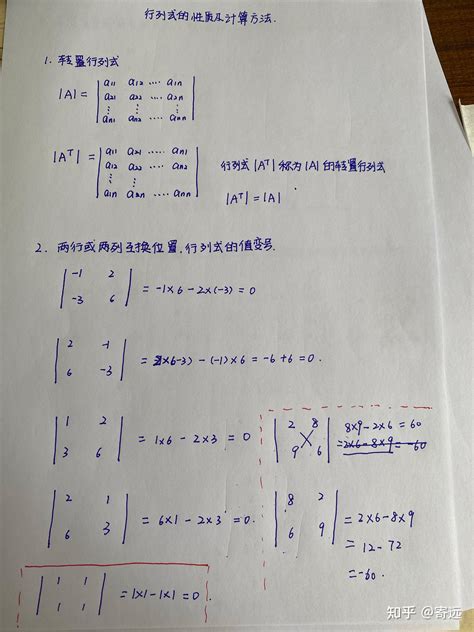 行列式的性质及计算方法.
1. 转置行列式
|A| = | a11 a12 .... a1n |
| a21 a22 ... a2n |
| ⋮ ⋮ ⋮ |
| an1 an2 ... ann |
|A^T| = | a11 a21 .... an1 |
| a12 a22 ... an2 |
| ⋮ ⋮ |
| a1n a2n ... ann |
行列式 |A^T| 称为 |A| 的转置行列式
|A^T| = |A|
2. 两行或两列互换位置, 行列式的值变号.
| -1 2 |
| -3 6 | = -1×6 - 2×(-3) = 0
| 2 -1 |
| 6 -3 | = 2×(-3) - (-1)×6 = -6+6 = 0.
| 1 2 |
| 3 6 | = 1×6 - 2×3 = 0
| 2 8 |
| 9 6 |
8×9 - 2×6 = 60
= 2×6 - 8×9 = -60
| 2 1 |
| 6 3 | = 6×1 - 2×3 = 0.
| 8 2 |
| 6 9 | = 2×6 - 8×9
= 12 - 72
= -60.
| 1 1 |
| 1 1 | = 1×1 - 1×1 = 0.
知乎 @寄远